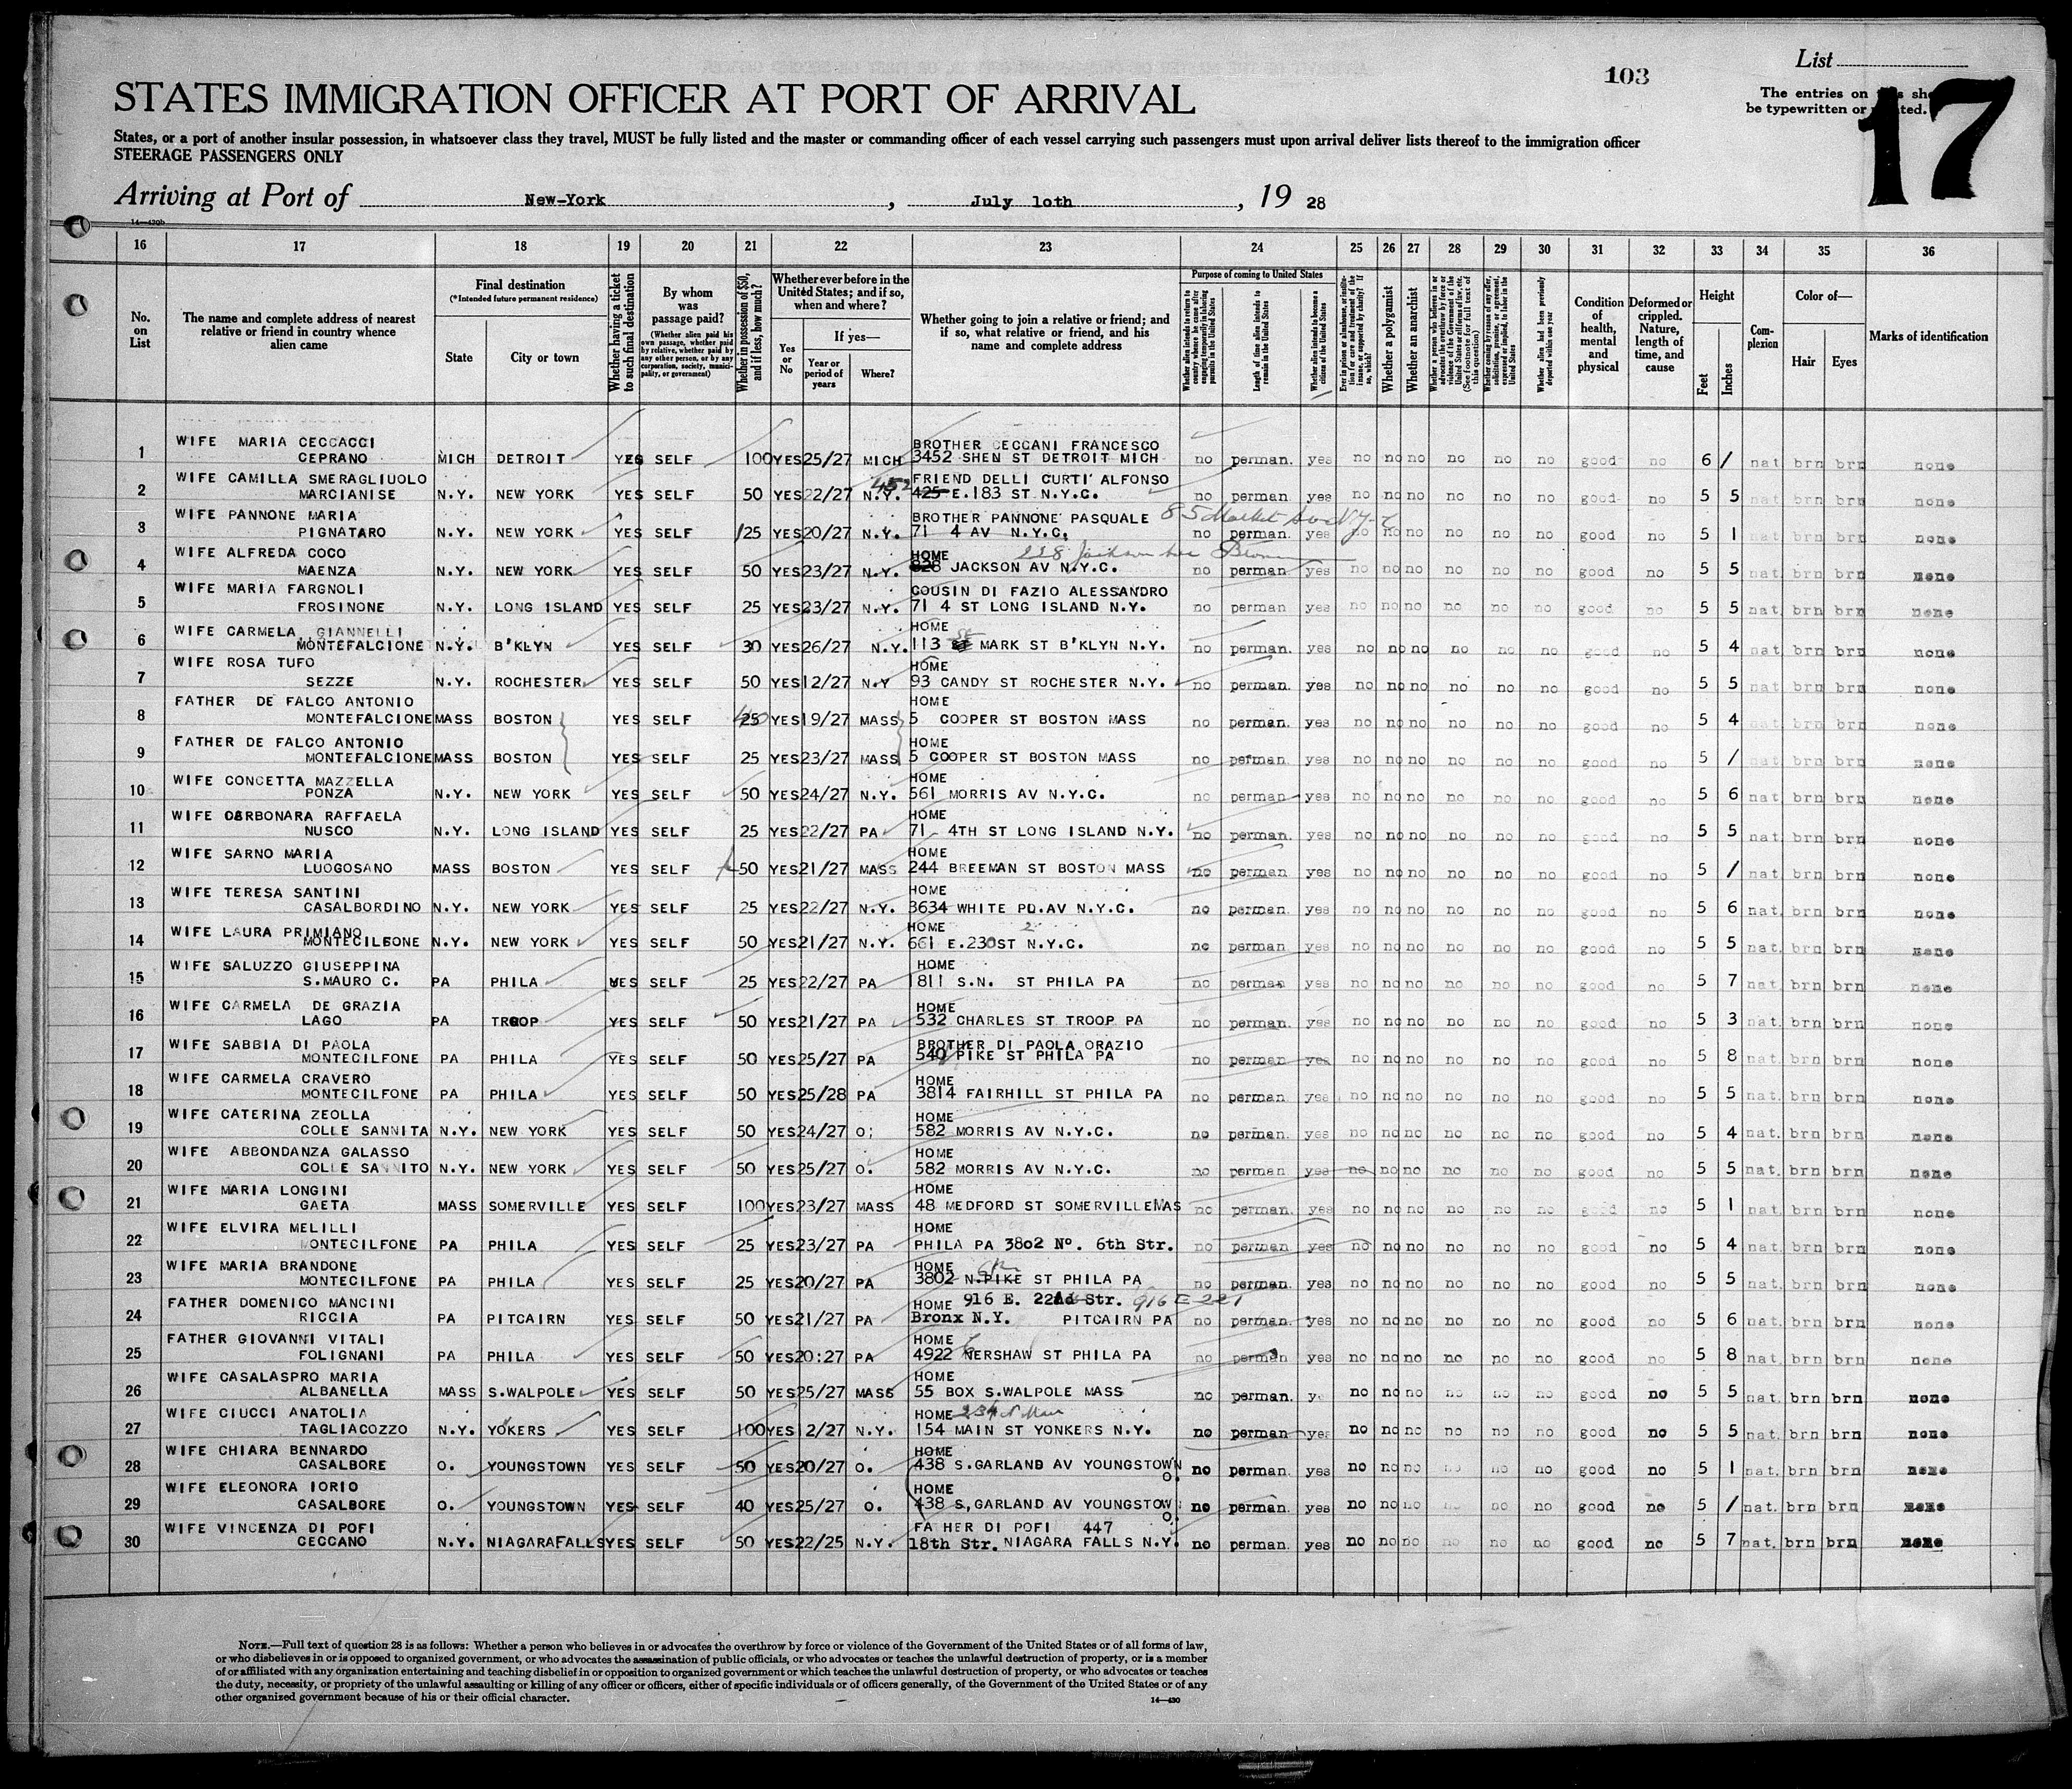 103
List
The entries on this sheet
be typewritten or printed.
17
STATES IMMIGRATION OFFICER AT PORT OF ARRIVAL
States, or a port of another insular possession, in whatsoever class they travel, MUST be fully listed and the master or commanding officer of each vessel carrying such passengers must upon arrival deliver lists thereof to the immigration officer
STEERAGE PASSENGERS ONLY
Arriving at Port of New-York, July 1oth, 19 28
14—430b
16 17 18 19 20 21 22 23 24 25 26 27 28 29 30 31 32 33 34 35 36
No. on List
The name and complete address of nearest relative or friend in country whence alien came
Final destination
(*Intended future permanent residence)
State
City or town
Whether having a ticket to such final destination
By whom was passage paid?
(Whether alien paid his own passage, whether paid by relative, whether paid by any other person, or by any corporation, society, municipality, or government)
Whether in possession of $50, and if less, how much?
Whether ever before in the United States; and if so, when and where?
Yes or No
If yes—
Year or period of years
Where?
Whether going to join a relative or friend; and if so, what relative or friend, and his name and complete address
Purpose of coming to United States
Whether alien intends to return to country whence he came after engaging temporarily in laboring pursuits in the United States
Length of time alien intends to remain in the United States
Whether alien intends to become a citizen of the United States
Ever in prison or almshouse, or institution for care and treatment of the insane, or supported by charity? If so, which?
Whether a polygamist
Whether an anarchist
Whether a person who believes in or advocates the overthrow by force or violence of the Government of the United States or all forms of law, etc. (See footnote for full text of this question)
Whether coming by reason of any offer, solicitation, promise, or agreement, expressed or implied, to labor in the United States
Whether alien had been previously deported within one year
Condition of health, mental and physical
Deformed or crippled. Nature, length of time, and cause
Height
Feet
Inches
Complexion
Color of—
Hair
Eyes
Marks of identification
WIFE MARIA CECCACCI BROTHER CECCANI FRANCESCO
1 CEPRANO MICH DETROIT YES SELF 100 YES 25/27 MICH 3452 SHEN ST DETROIT MICH no perman. yes no no no no no no good no 6 / nat brn brn none
WIFE CAMILLA SMERAGLIUOLO FRIEND DELLI CURTI ALFONSO
2 MARCIANISE N.Y. NEW YORK YES SELF 50 YES 22/27 N.Y. 452 425 E.183 ST N.Y.C. no perman yes no no no no no no good no 5 5 nat brn brn none
WIFE PANNONE MARIA BROTHER PANNONE PASQUALE 85 Market
3 PIGNATARO N.Y. NEW YORK YES SELF 25 YES 20/27 N.Y. 71 4 AV N.Y.C. no perman. yes no no no no no no good no 5 1 nat brn brn none
WIFE ALFREDA COCO HOME 228 Jackson Ave Bronx
4 MAENZA N.Y. NEW YORK YES SELF 50 YES 23/27 N.Y. 828 JACKSON AV N.Y.C. no perman yes no no no no no no good no 5 5 nat. brn brn none
WIFE MARIA FARGNOLI COUSIN DI FAZIO ALESSANDRO
5 FROSINONE N.Y. LONG ISLAND YES SELF 25 YES 23/27 N.Y. 71 4 ST LONG ISLAND N.Y. no perman yes no no no no no no good no 5 5 nat. brn brn none
WIFE CARMELA GIANNELLI HOME
6 MONTEFALCIONE N.Y. B'KLYN YES SELF 30 YES 26/27 N.Y. 113 MARK ST B'KLYN N.Y. no perman. yes no no no no no no good no 5 4 nat brn brn none
WIFE ROSA TUFO HOME
7 SEZZE N.Y. ROCHESTER YES SELF 50 YES 12/27 N.Y 93 CANDY ST ROCHESTER N.Y. no perman. yes no no no no no no good no 5 5 nat. brn brn none
FATHER DE FALCO ANTONIO HOME
8 MONTEFALCIONE MASS BOSTON YES SELF 25 YES 19/27 MASS 5 COOPER ST BOSTON MASS no perman. yes no no no no no no good no 5 4 nat brn brn none
FATHER DE FALCO ANTONIO HOME
9 MONTEFALCIONE MASS BOSTON YES SELF 25 YES 23/27 MASS 5 COOPER ST BOSTON MASS no perman. yes no no no no no no good no 5 / nat brn brn none
WIFE CONCETTA MAZZELLA HOME
10 PONZA N.Y. NEW YORK YES SELF 50 YES 24/27 N.Y. 561 MORRIS AV N.Y.C. no perman yes no no no no no no good no 5 6 nat brn brn none
WIFE CARBONARA RAFFAELA HOME
11 NUSCO N.Y. LONG ISLAND YES SELF 25 YES 22/27 PA 71 4TH ST LONG ISLAND N.Y. no perman. yes no no no no no no good no 5 5 nat. brn brn none
WIFE SARNO MARIA HOME
12 LUOGOSANO MASS BOSTON YES SELF 50 YES 21/27 MASS 244 BREEMAN ST BOSTON MASS no perman yes no no no no no no good no 5 / nat. brn brn none
WIFE TERESA SANTINI HOME
13 CASALBORDINO N.Y. NEW YORK YES SELF 25 YES 22/27 N.Y. 3634 WHITE PL.AV N.Y.C. no perman yes no no no no no no good no 5 6 nat. brn brn none
WIFE LAURA PRIMIANO HOME 2
14 MONTECILFONE N.Y. NEW YORK YES SELF 50 YES 21/27 N.Y. 661 E.230ST N.Y.C. no perman yes no no no no no no good no 5 5 nat. brn brn none
WIFE SALUZZO GIUSEPPINA HOME
15 S.MAURO C. PA PHILA YES SELF 25 YES 22/27 PA 1811 S.N. ST PHILA PA no perman yes no no no no no no good no 5 7 nat. brn brn none
WIFE CARMELA DE GRAZIA HOME
16 LAGO PA TROOP YES SELF 50 YES 21/27 PA 532 CHARLES ST TROOP PA no perman yes no no no no no no good no 5 3 nat. brn brn none
WIFE SABBIA DI PAOLA BROTHER DI PAOLA ORAZIO
17 MONTECILFONE PA PHILA YES SELF 50 YES 25/27 PA 540 PIKE ST PHILA PA no perman yes no no no no no no good no 5 8 nat. brn brn none
WIFE CARMELA CRAVERO HOME
18 MONTECILFONE PA PHILA YES SELF 50 YES 25/28 PA 3814 FAIRHILL ST PHILA PA no perman. yes no no no no no no good no 5 5 nat. brn brn none
WIFE CATERINA ZEOLLA HOME
19 COLLE SANNITA N.Y. NEW YORK YES SELF 50 YES 24/27 O; 582 MORRIS AV N.Y.C. no perman. yes no no no no no no good no 5 4 nat. brn brn none
WIFE ABBONDANZA GALASSO HOME
20 COLLE SANNITO N.Y. NEW YORK YES SELF 50 YES 25/27 O. 582 MORRIS AV N.Y.C. no perman yes no no no no no no good no 5 5 nat. brn brn none
WIFE MARIA LONGINI HOME
21 GAETA MASS SOMERVILLE YES SELF 100 YES 23/27 MASS 48 MEDFORD ST SOMERVILLE MAS no perman. yes no no no no no no good no 5 1 nat. brn brn none
WIFE ELVIRA MELILLI HOME
22 MONTECILFONE PA PHILA YES SELF 25 YES 23/27 PA PHILA PA 38o2 N°. 6th Str. no perman yes no no no no no no good no 5 4 nat. brn brn none
WIFE MARIA BRANDONE HOME 6th
23 MONTECILFONE PA PHILA YES SELF 25 YES 20/27 PA 3802 N.PIKE ST PHILA PA no perman. yes no no no no no no good no 5 5 nat. brn brn none
FATHER DOMENICO MANCINI HOME 916 E. 22nd Str. 916 E 221
24 RICCIA PA PITCAIRN YES SELF 50 YES 21/27 PA Bronx N.Y. PITCAIRN PA no perman. yes no no no no no no good no 5 6 nat. brn brn none
FATHER GIOVANNI VITALI HOME
25 FOLIGNANI PA PHILA YES SELF 50 YES 20:27 PA 4922 KERSHAW ST PHILA PA no perman yes no no no no no no good no 5 8 nat. brn brn none
WIFE CASALASPRO MARIA HOME
26 ALBANELLA MASS S.WALPOLE YES SELF 50 YES 25/27 MASS 55 BOX S.WALPOLE MASS no perman. no no no no no no good no 5 5 nat. brn brn none
WIFE CIUCCI ANATOLIA HOME 234 N Main
27 TAGLIACOZZO N.Y. YOKERS YES SELF 100 YES 12/27 N.Y. 154 MAIN ST YONKERS N.Y. no perman yes no no no no no no good no 5 5 nat. brn brn none
WIFE CHIARA BENNARDO HOME
28 CASALBORE O. YOUNGSTOWN YES SELF 50 YES 20/27 O. 438 S.GARLAND AV YOUNGSTOWN O. no perman. yes no no no no no no good no 5 1 nat. brn brn none
WIFE ELEONORA IORIO HOME
29 CASALBORE O. YOUNGSTOWN YES SELF 40 YES 25/27 O. 438 S,GARLAND AV YOUNGSTOW O. no perman. yes no no no no no no good no 5 / nat. brn brn none
WIFE VINCENZA DI POFI FA HER DI POFI 447
30 CECCANO N.Y. NIAGARAFALLS YES SELF 50 YES 22/25 N.Y. 18th Str. NIAGARA FALLS N.Y. no perman. yes no no no no no no good no 5 7 nat. brn brn none
NOTE.—Full text of question 28 is as follows: Whether a person who believes in or advocates the overthrow by force or violence of the Government of the United States or of all forms of law,
or who disbelieves in or is opposed to organized government, or who advocates the assassination of public officials, or who advocates or teaches the unlawful destruction of property, or is a member
of or affiliated with any organization entertaining and teaching disbelief in or opposition to organized government or which teaches the unlawful destruction of property, or who advocates or teaches
the duty, necessity, or propriety of the unlawful assaulting or killing of any officer or officers, either of specific individuals or of officers generally, of the Government of the United States or of any
other organized government because of his or their official character.
14—430